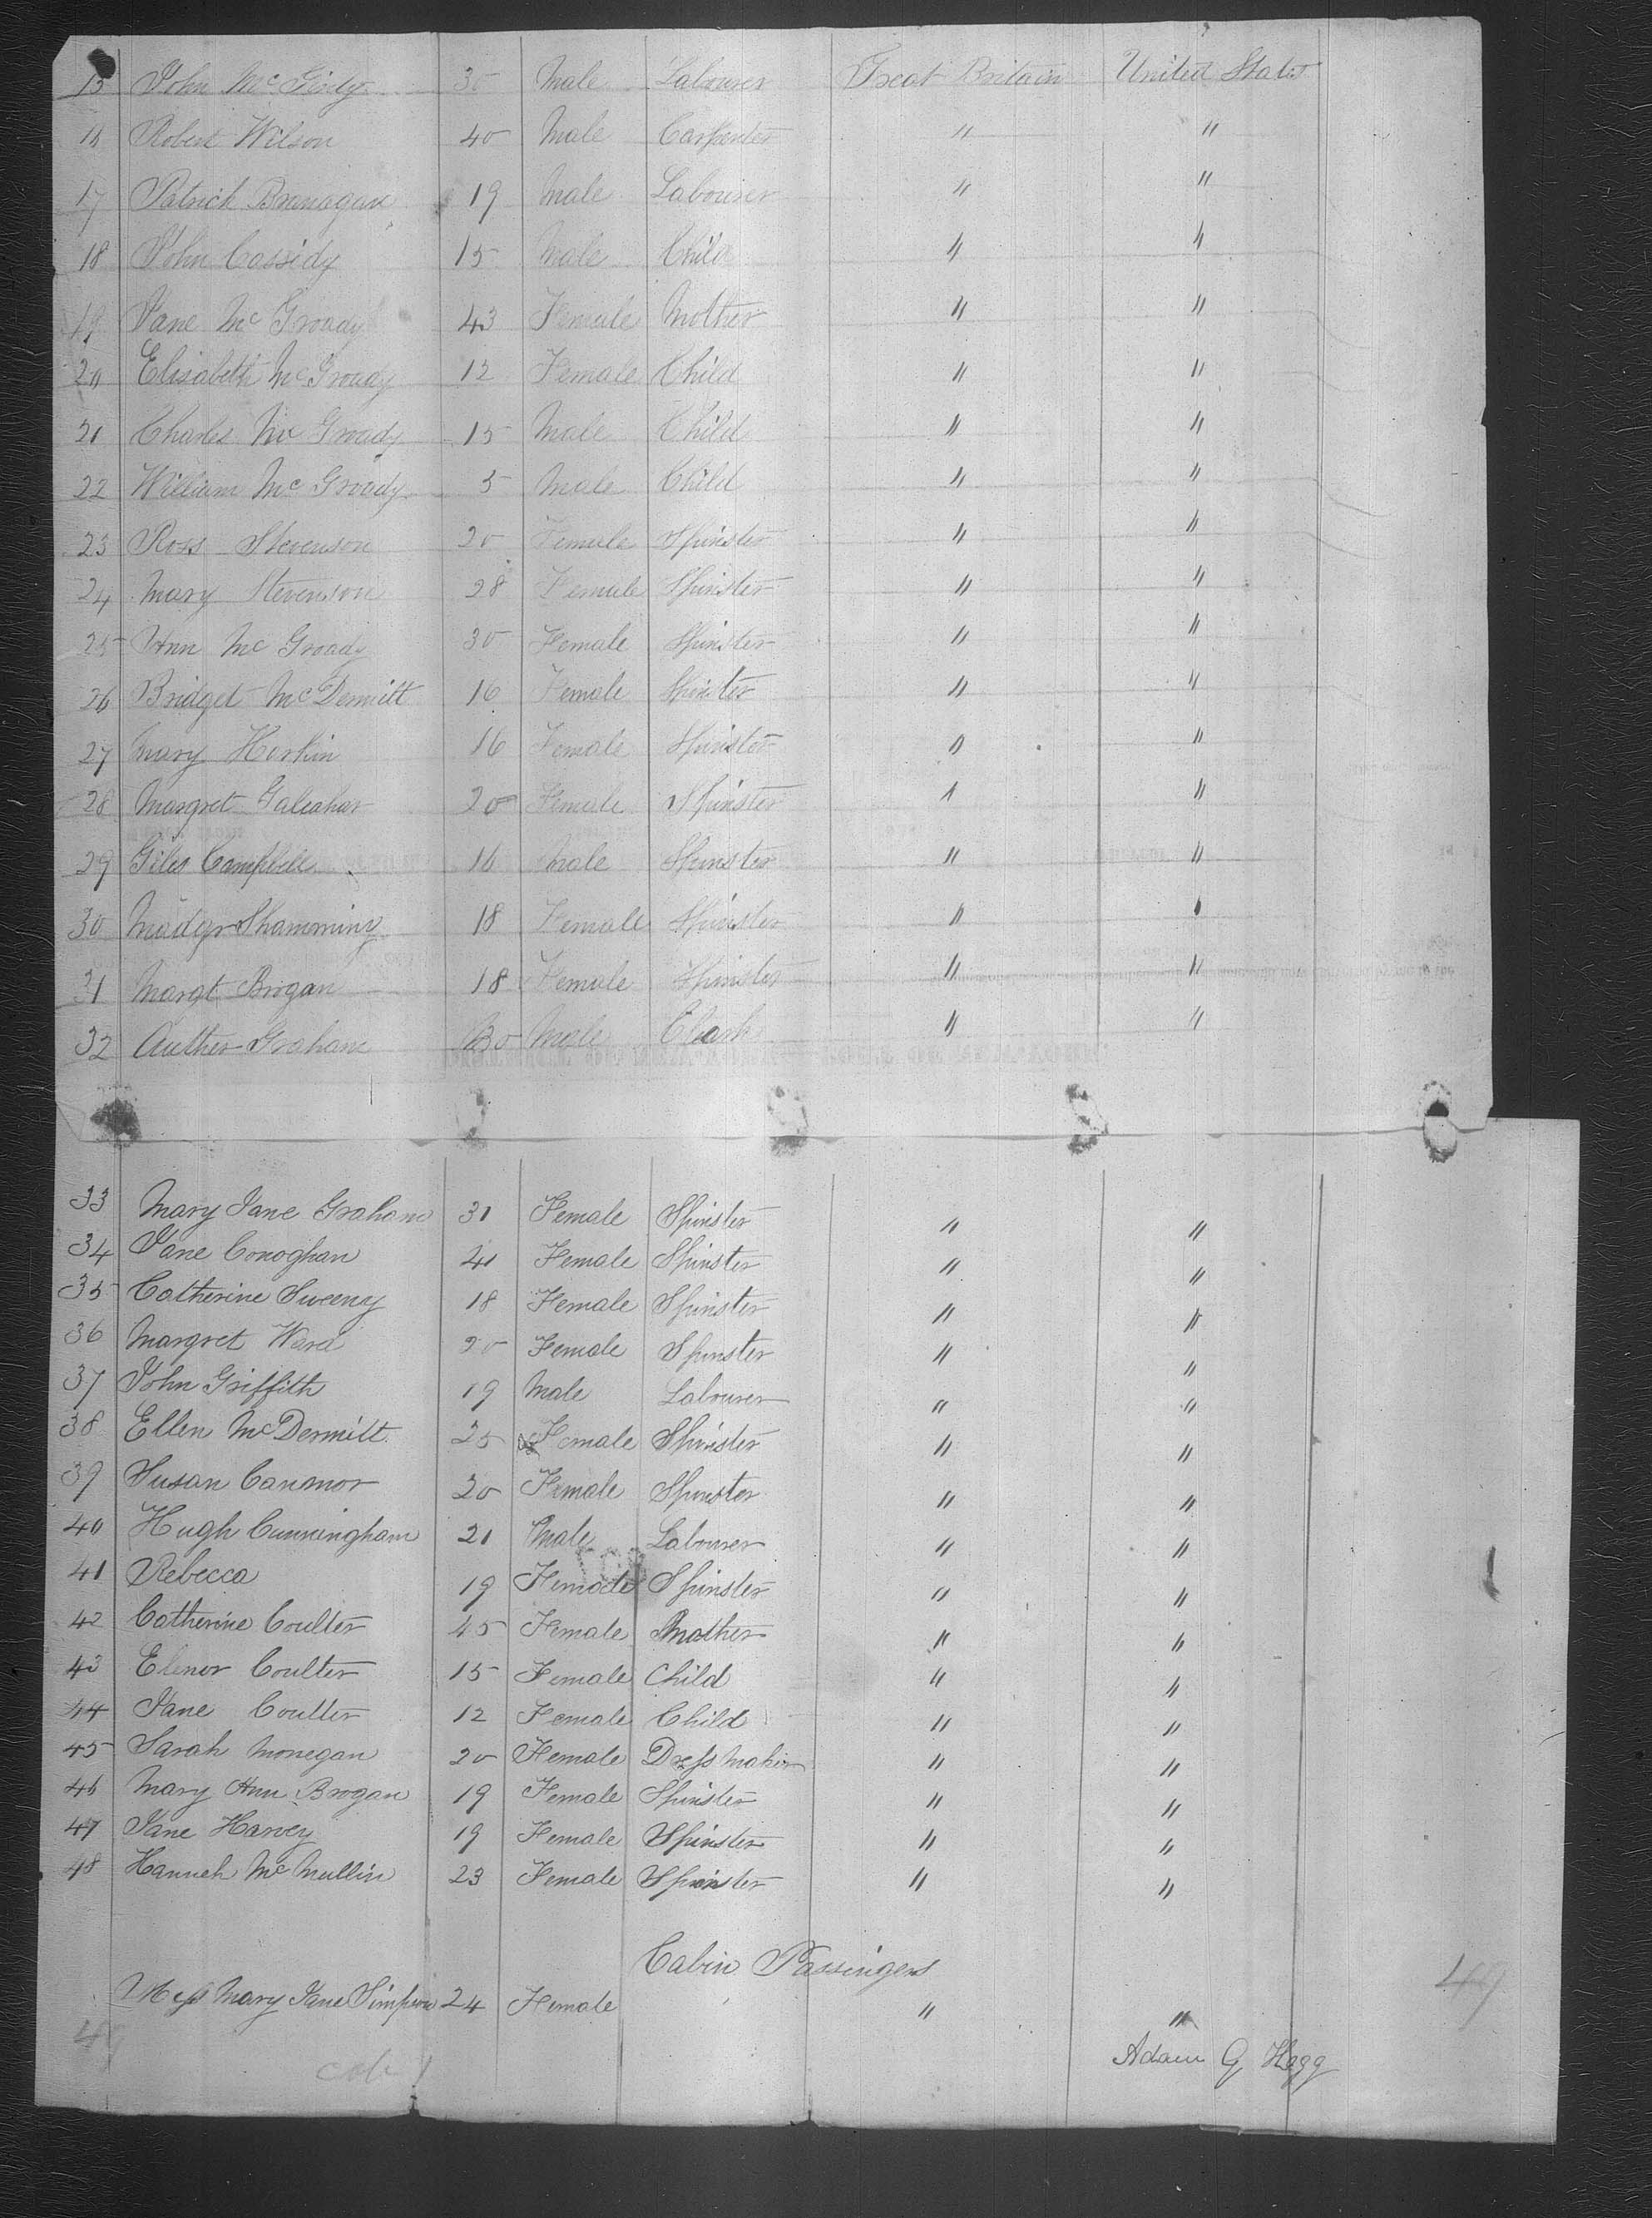 15 John McGirdy 30 Male Labourer Great Britain United States
16 Robert Wilson 40 Male Carpenter " "
17 Patrick Branagan 19 Male Labourer " "
18 John Cassidy 15 Male Child " "
19 Jane McGroady 43 Female Mother " "
20 Elisabeth McGroady 12 Female Child " "
21 Charles McGroady 15 Male Child " "
22 William McGroady 5 Male Child " "
23 Ross Stevenson 20 Female Spinster " "
24 Mary Stevenson 28 Female Spinster " "
25 Ann McGroady 30 Female Spinster " "
26 Bridget McDermitt 16 Female Spinster " "
27 Mary Herkin 16 Female Spinster " "
28 Margret Galeahar 20 Female Spinster " "
29 Giles Campbell 16 Male Spinster " "
30 18 Female Spinster " "
31 Margt Brogan 18 Female Spinster " "
32 Auther Graham 30 Male Clark " "
33 Mary Jane Graham 31 Female Spinster " "
34 Jane Conoghan 21 Female Spinster " "
35 Catherine Sweeny 18 Female Spinster " "
36 Margret Ward 20 Female Spinster " "
37 John Griffith 19 Male Labourer " "
38 Ellen McDermitt 25 Female Spinster " "
39 Susan Cannnor 20 Female Spinster " "
40 Hugh Cunningham 21 Male Labourer " "
41 Rebecca 19 Female Spinster " "
42 Catherine Coulter 45 Female Mother " "
43 Elenor Coulter 15 Female Child " "
44 Jane Coulter 12 Female Child " "
45 Sarah Monegan 20 Female Dress Maker " "
46 Mary Ann Brogan 19 Female Spinster " "
47 Jane Harvey 19 Female Spinster " "
48 Hannah McMullin 23 Female Spinster " "
Cabin Passingers
Miss Mary Jane Simpson 24 Female " "
49
49
Adam G Hagg
cab 1